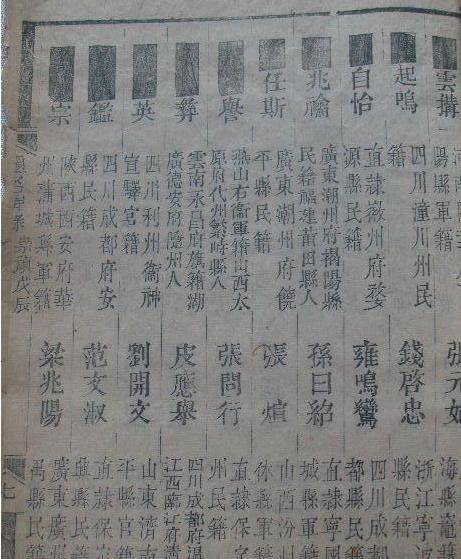 雲搆
陽縣軍籍
起鳴
四川潼川州民
籍
自怡
直隷徽州府婺
源縣民籍
兆禴
廣東潮州府揭陽縣
民籍福建莆田縣人
任斯
廣東潮州府饒
平縣民籍
譽
燕山右衛軍籍山西太
原府代州繁峙縣人
彝
雲南永昌府旗籍湖
廣德安府隨州人
英
四川利州衛神
宣驛官籍
鑑
四川成都府安
縣民籍
宗
陝西西安府華
州蒲城縣軍籍
崇禎戊辰
張元
海縣竈
錢啓忠
浙江寧
縣民籍
雍鳴鸞
四川成
都縣民
孫曰紹
直隷寧國
城縣軍
張煊
山西汾
休縣軍
張問行
直隷保定
州民籍
皮應舉
四川成都府溫
江西臨江府清
劉開文
山東濟南
平縣官籍
范文淑
直隷保定
興縣民籍
梁兆陽
廣東廣州
禺縣民籍
七